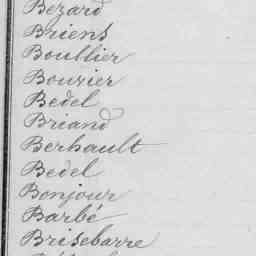 Bezard
Briens
Boullier
Bourier
Bedel
Briand
Berhault
Bedel
Bonjour
Barbé
Brisebarre